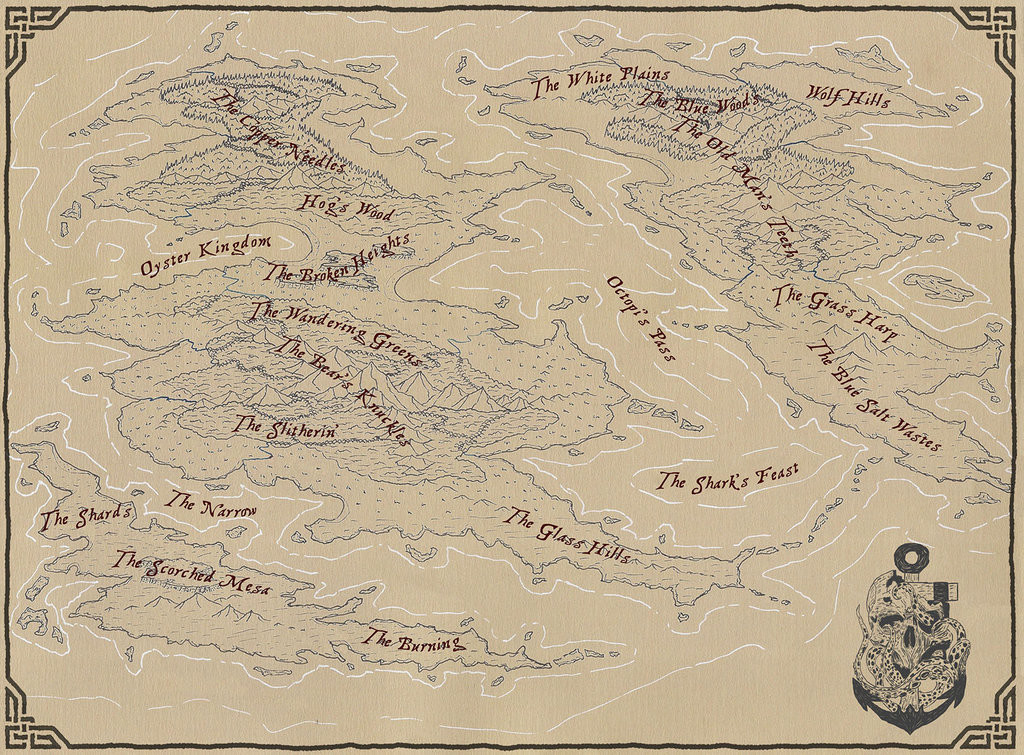 The White Plains
The Blue Woods
Wolf Hills
The Copper Needles
The Old Man's Teeth
Hog's Wood
Oyster Kingdom
The Broken Heights
Octopi's Pass
The Grass Harp
The Wandering Greens
The Bear's Knuckles
The Blue Salt Wastes
The Slitherin'
The Shark's Feast
The Shards
The Narrow
The Glass Hills
The Scorched Mesa
The Burning